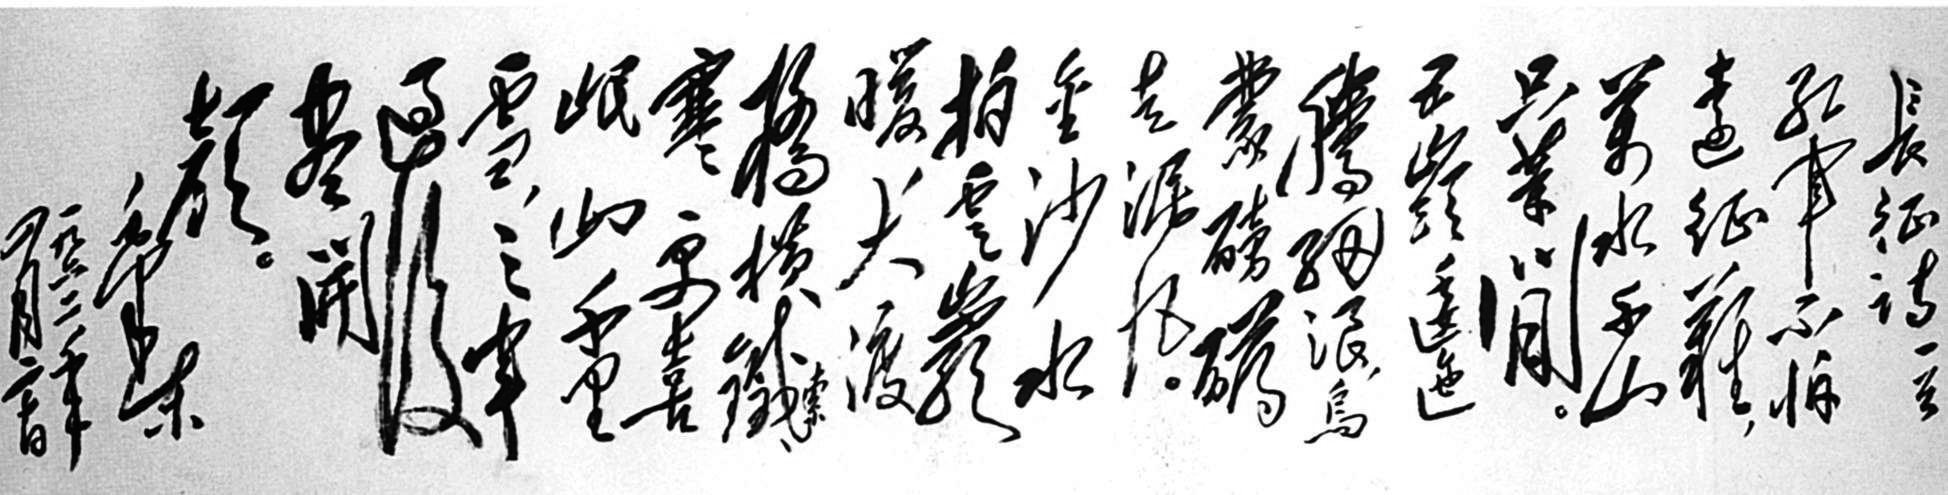 長征詩一首
紅軍不怕
遠征難，
萬水千山
只等閒。
五嶺逶迤
騰細浪，烏
蒙磅礴
走泥丸。
金沙水
拍雲巖
暖大渡
橋橫鐵索
寒更喜
岷山千里
雪，三軍
過後
盡開
顏。
毛澤東
一九六二年
四月二十日